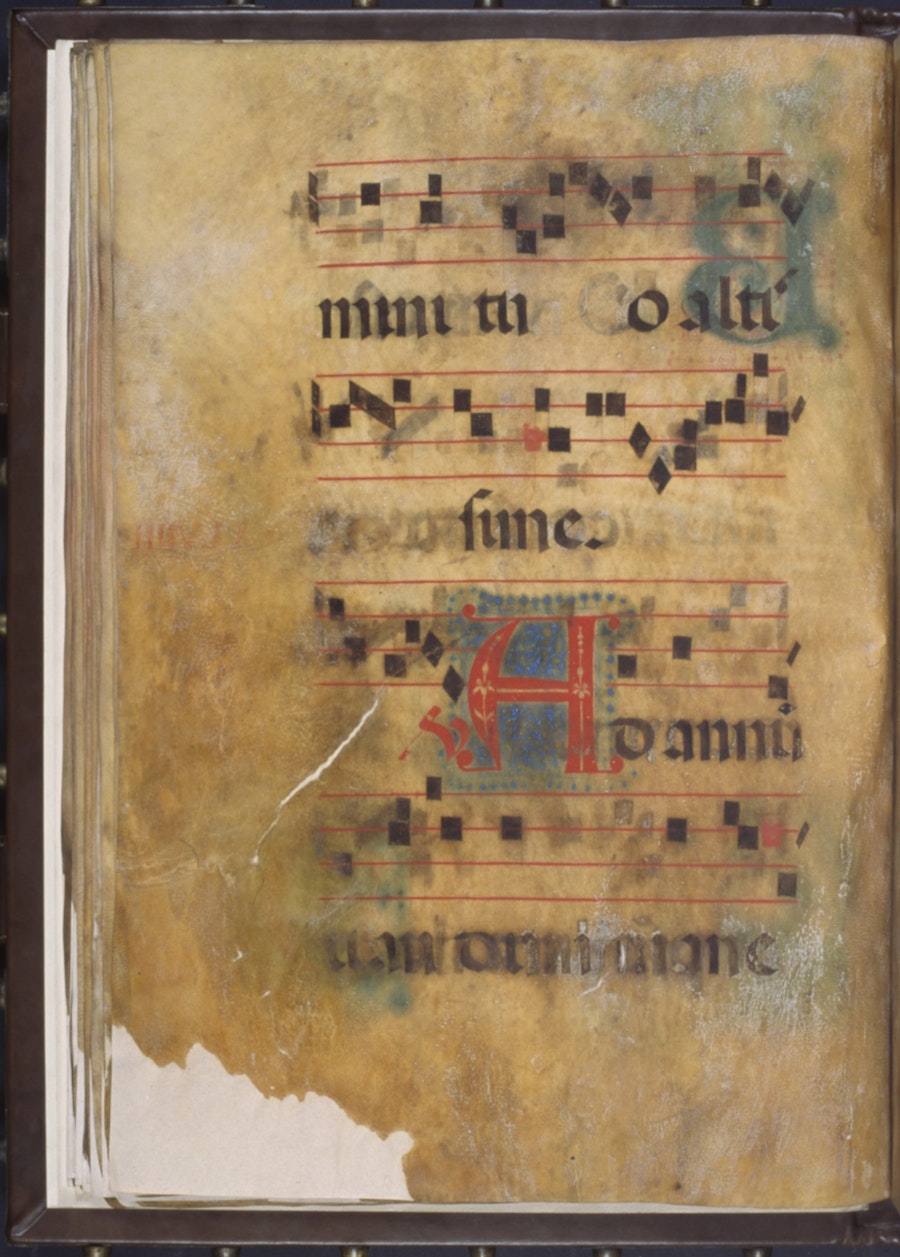 mini tu o alti
sime.
V Ad annū
tiandum mane